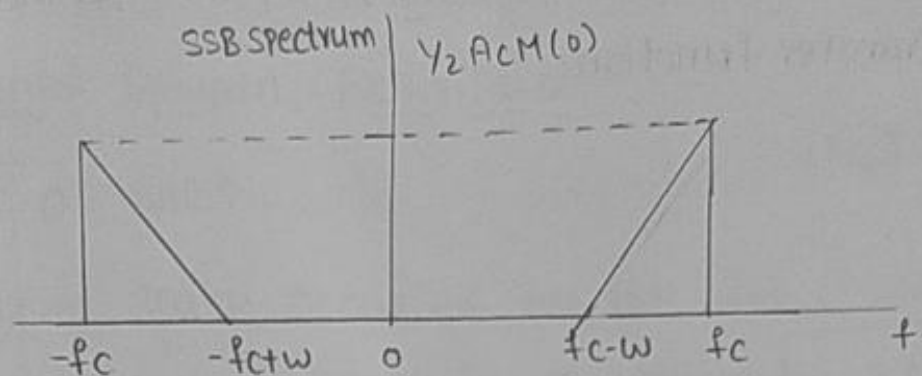 SSB spectrum
1/2 AcM(0)
-fc -fc+w 0 fc-w fc f